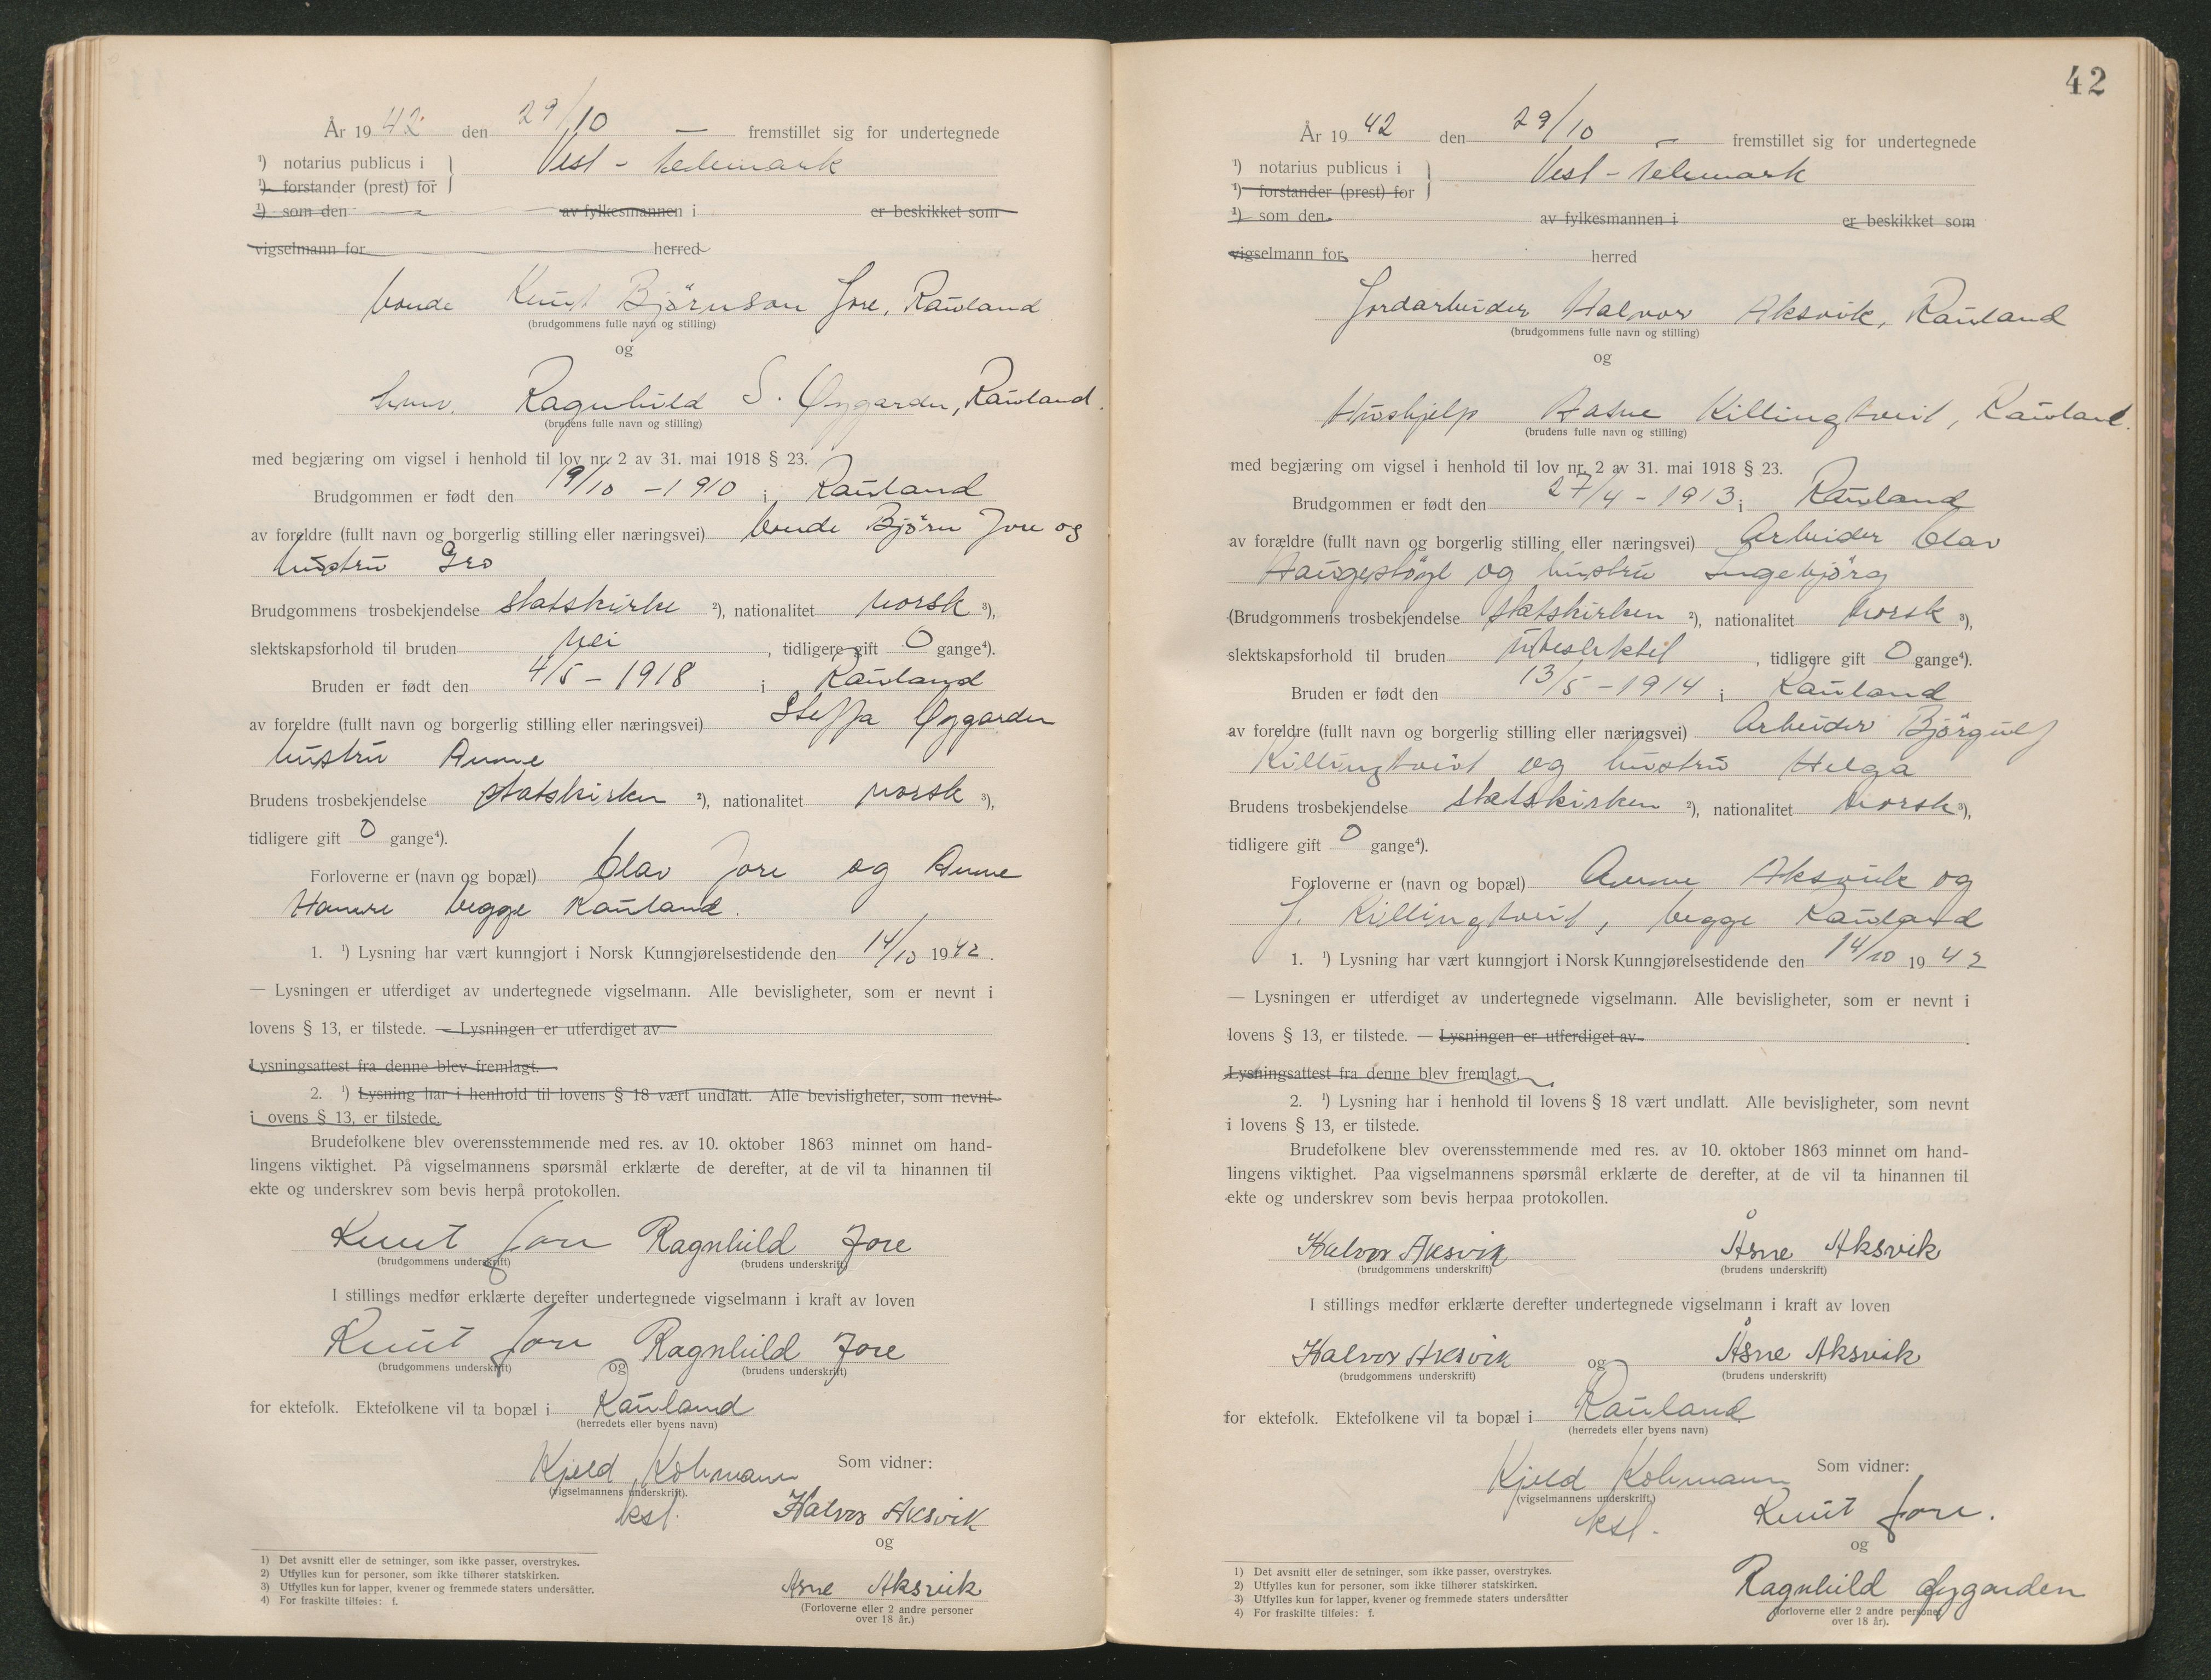 År 1942 den 29/10 — fremstillet sig for undertegnede
¹) notarius publicus i } Vest-Telemark
¹) forstander (prest) for
¹) som den av fylkesmannen i er beskikket som
vigselmann for herred
bonde Knut Björnson Jore, Rauland
(brudgommens fulle navn og stilling)
og
Ragnhild S. Øygarden, Rauland.
(brudens fulle navn og stilling)
med begjæring om vigsel i henhold til lov nr. 2 av 31. mai 1918 § 23.
Brudgommen er født den 19/10 - 1910 i Rauland
av foreldre (fullt navn og borgerlig stilling eller næringsvei) bonde Björn Jore og
hustru Gro
Brudgommens trosbekjendelse statskirke ²), nationalitet norsk ³),
slektskapsforhold til bruden nei, tidligere gift 0 gange⁴).
Bruden er født den 4/5 - 1918 i Rauland
av foreldre (fullt navn og borgerlig stilling eller næringsvei) Steffa Øygarden
hustru Anne
Brudens trosbekjendelse statskirken ²), nationalitet norsk ³),
tidligere gift 0 gange⁴).
Forloverne er (navn og bopæl) Olav Jore og Anne
Hamre begge Rauland.
1. ¹) Lysning har vært kunngjort i Norsk Kunngjørelsestidende den 14/10 1942.
— Lysningen er utferdiget av undertegnede vigselmann. Alle bevisligheter, som er nevnt i
lovens § 13, er tilstede. — Lysningen er utferdiget av
Lysningsattest fra denne blev fremlagt.
2. ¹) Lysning har i henhold til lovens § 18 vært undlatt. Alle bevisligheter, som nevnt
i ovens § 13, er tilstede.
Brudefolkene blev overensstemmende med res. av 10. oktober 1863 minnet om hand-
lingens viktighet. På vigselmannens spørsmål erklærte de derefter, at de vil ta hinannen til
ekte og underskrev som bevis herpå protokollen.
Knut Jore Ragnhild Jore
(brudgommens underskrift) (brudens underskrift)
I stillings medfør erklærte derefter undertegnede vigselmann i kraft av loven
Knut Jore Ragnhild Jore
(brudgommens underskrift) og (brudens underskrift)
for ektefolk. Ektefolkene vil ta bopæl i Rauland
(herredets eller byens navn)
Kjeld Kohmann Som vidner:
(vigselmannens underskrift).
kst. Halvor Aksvik
og
Åsne Aksvik
(Forloverne eller 2 andre personer
over 18 år.)
1) Det avsnitt eller de setninger, som ikke passer, overstrykes.
2) Utfylles kun for personer, som ikke tilhører statskirken.
3) Utfylles kun for lapper, kvener og fremmede staters undersåtter.
4) For fraskilte tilføies: f.
42
År 1942 den 29/10 — fremstillet sig for undertegnede
¹) notarius publicus i } Vest-Telemark
¹) forstander (prest) for
¹) som den av fylkesmannen i er beskikket som
vigselmann for herred
Jordarbeider Halvor Aksvik, Rauland
(brudgommens fulle navn og stilling)
og
Hushjelp Aasne Killingtveit, Rauland.
(brudens fulle navn og stilling)
med begjæring om vigsel i henhold til lov nr. 2 av 31. mai 1918 § 23.
Brudgommen er født den 27/4 - 1913 i Rauland
av forældre (fullt navn og borgerlig stilling eller næringsvei) Arbeider Olav
Haugestöyl og hustru Ingebjörg
(Brudgommens trosbekjendelse statskirken ²), nationalitet norsk ³),
slektskapsforhold til bruden ubeslektet, tidligere gift 0 gange⁴).
Bruden er født den 13/5 - 1914 i Rauland
av foreldre (fullt navn og borgerlig stilling eller næringsvei) Arbeider Björgulf
Killingtveit og hustru Helga
Brudens trosbekjendelse statskirken ²), nationalitet norsk ³),
tidligere gift 0 gange⁴).
Forloverne er (navn og bopæl) Anne Aksvik og
J. Killingtveit, begge Rauland
1. ¹) Lysning har vært kunngjort i Norsk Kunngjørelsestidende den 14/10 1942
— Lysningen er utferdiget av undertegnede vigselmann. Alle bevisligheter, som er nevnt i
lovens § 13, er tilstede. — Lysningen er utferdiget av
Lysningsattest fra denne blev fremlagt.
2. ¹) Lysning har i henhold til lovens § 18 vært undlatt. Alle bevisligheter, som nevnt
i lovens § 13, er tilstede.
Brudefolkene blev overensstemmende med res. av 10. oktober 1863 minnet om hand-
lingens viktighet. Paa vigselmannens spørsmål erklærte de derefter, at de vil ta hinannen til
ekte og underskrev som bevis herpaa protokollen.
Halvor Aksvik Åsne Aksvik
(brudgommens underskrift) (brudens underskrift)
I stillings medfør erklærte derefter undertegnede vigselmann i kraft av loven
Halvor Aksvik og Åsne Aksvik
(brudgommens underskrift) (brudens underskrift)
for ektefolk. Ektefolkene vil ta bopæl i Rauland
(herredets eller byens navn)
Kjeld Kohmann Som vidner:
(vigselmannens underskrift.)
kst. Knut Jore.
og
Ragnhild Øygarden
(forloverne eller 2 andre personer
over 18 år).
1) Det avsnitt eller de setninger, som ikke passer, overstrykes.
2) Utfylles kun for personer, som ikke tilhører statskirken.
3) Utfylles kun for lapper, kvener og fremmede staters undersåtter
4) For fraskilte tilføies: f.